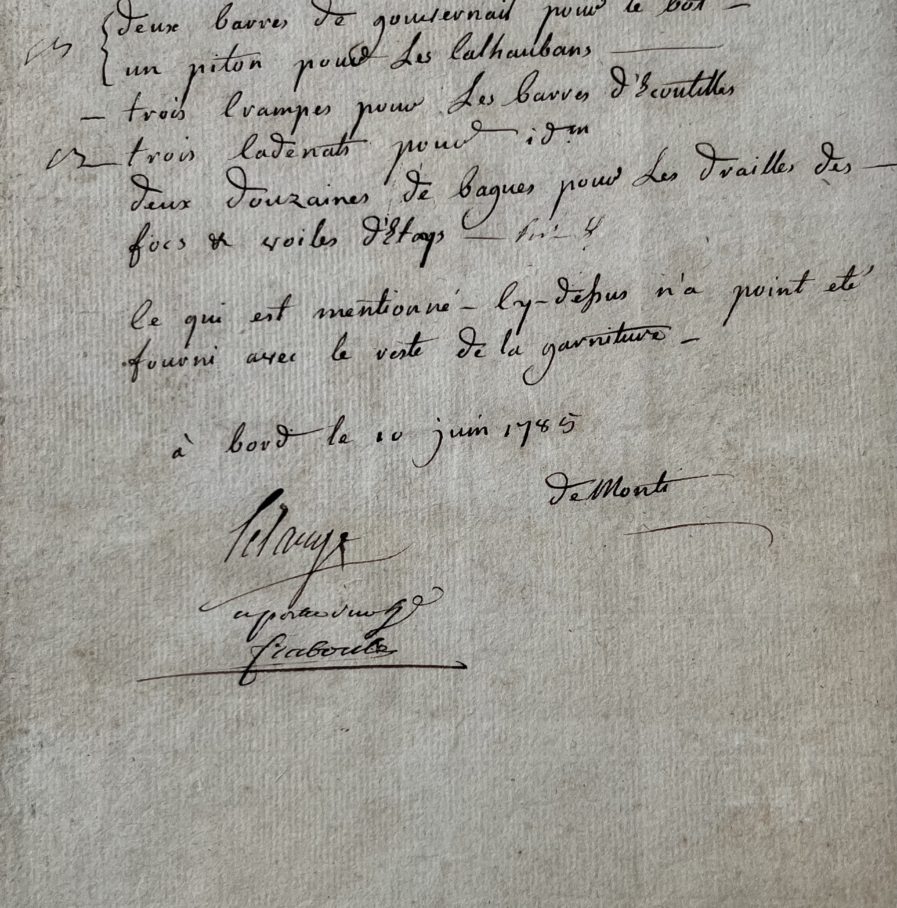 deux barres de gouvernail pour le bot —
un piton pour Les Calhaubans —
— trois Crampes pour Les barres d'Ecoutilles
— trois Cadenats pour idm
deux douzaines de bagues pour Les drailles des —
focs & voiles d'Etays —
Ce qui est mentionné - Cy-dessus n'a point eté
fourni avec le reste de la garniture -
à bord le 10 juin 1785
de Monti